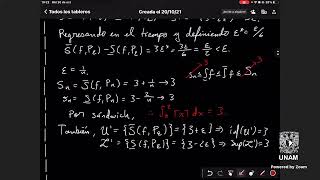 Todos los tableros
Creada el 20/10/21
Regresando en el tiempo y definiendo ε* = ε/6
S̄(f, Pε) - S̲(f, Pε) = 3ε* = 3ε/6 = ε/2 < ε.
ε = 1/n.
S̄n = S̄(f, Pn) = 3 + 1/n → 3
s̲n = S̲(f, Pn) = 3 - 2/n → 3
Por sandwich, ∴ ∫₀² ⌈x⌉ dx = 3
También, U' = {S̄(f, Pε)} = {3+ε} ⟹ inf(U') = 3
= {S̲(f, Pε)} = {3-2ε} ⟹ sup(L') = 3
UNAM
Powered by Zoom